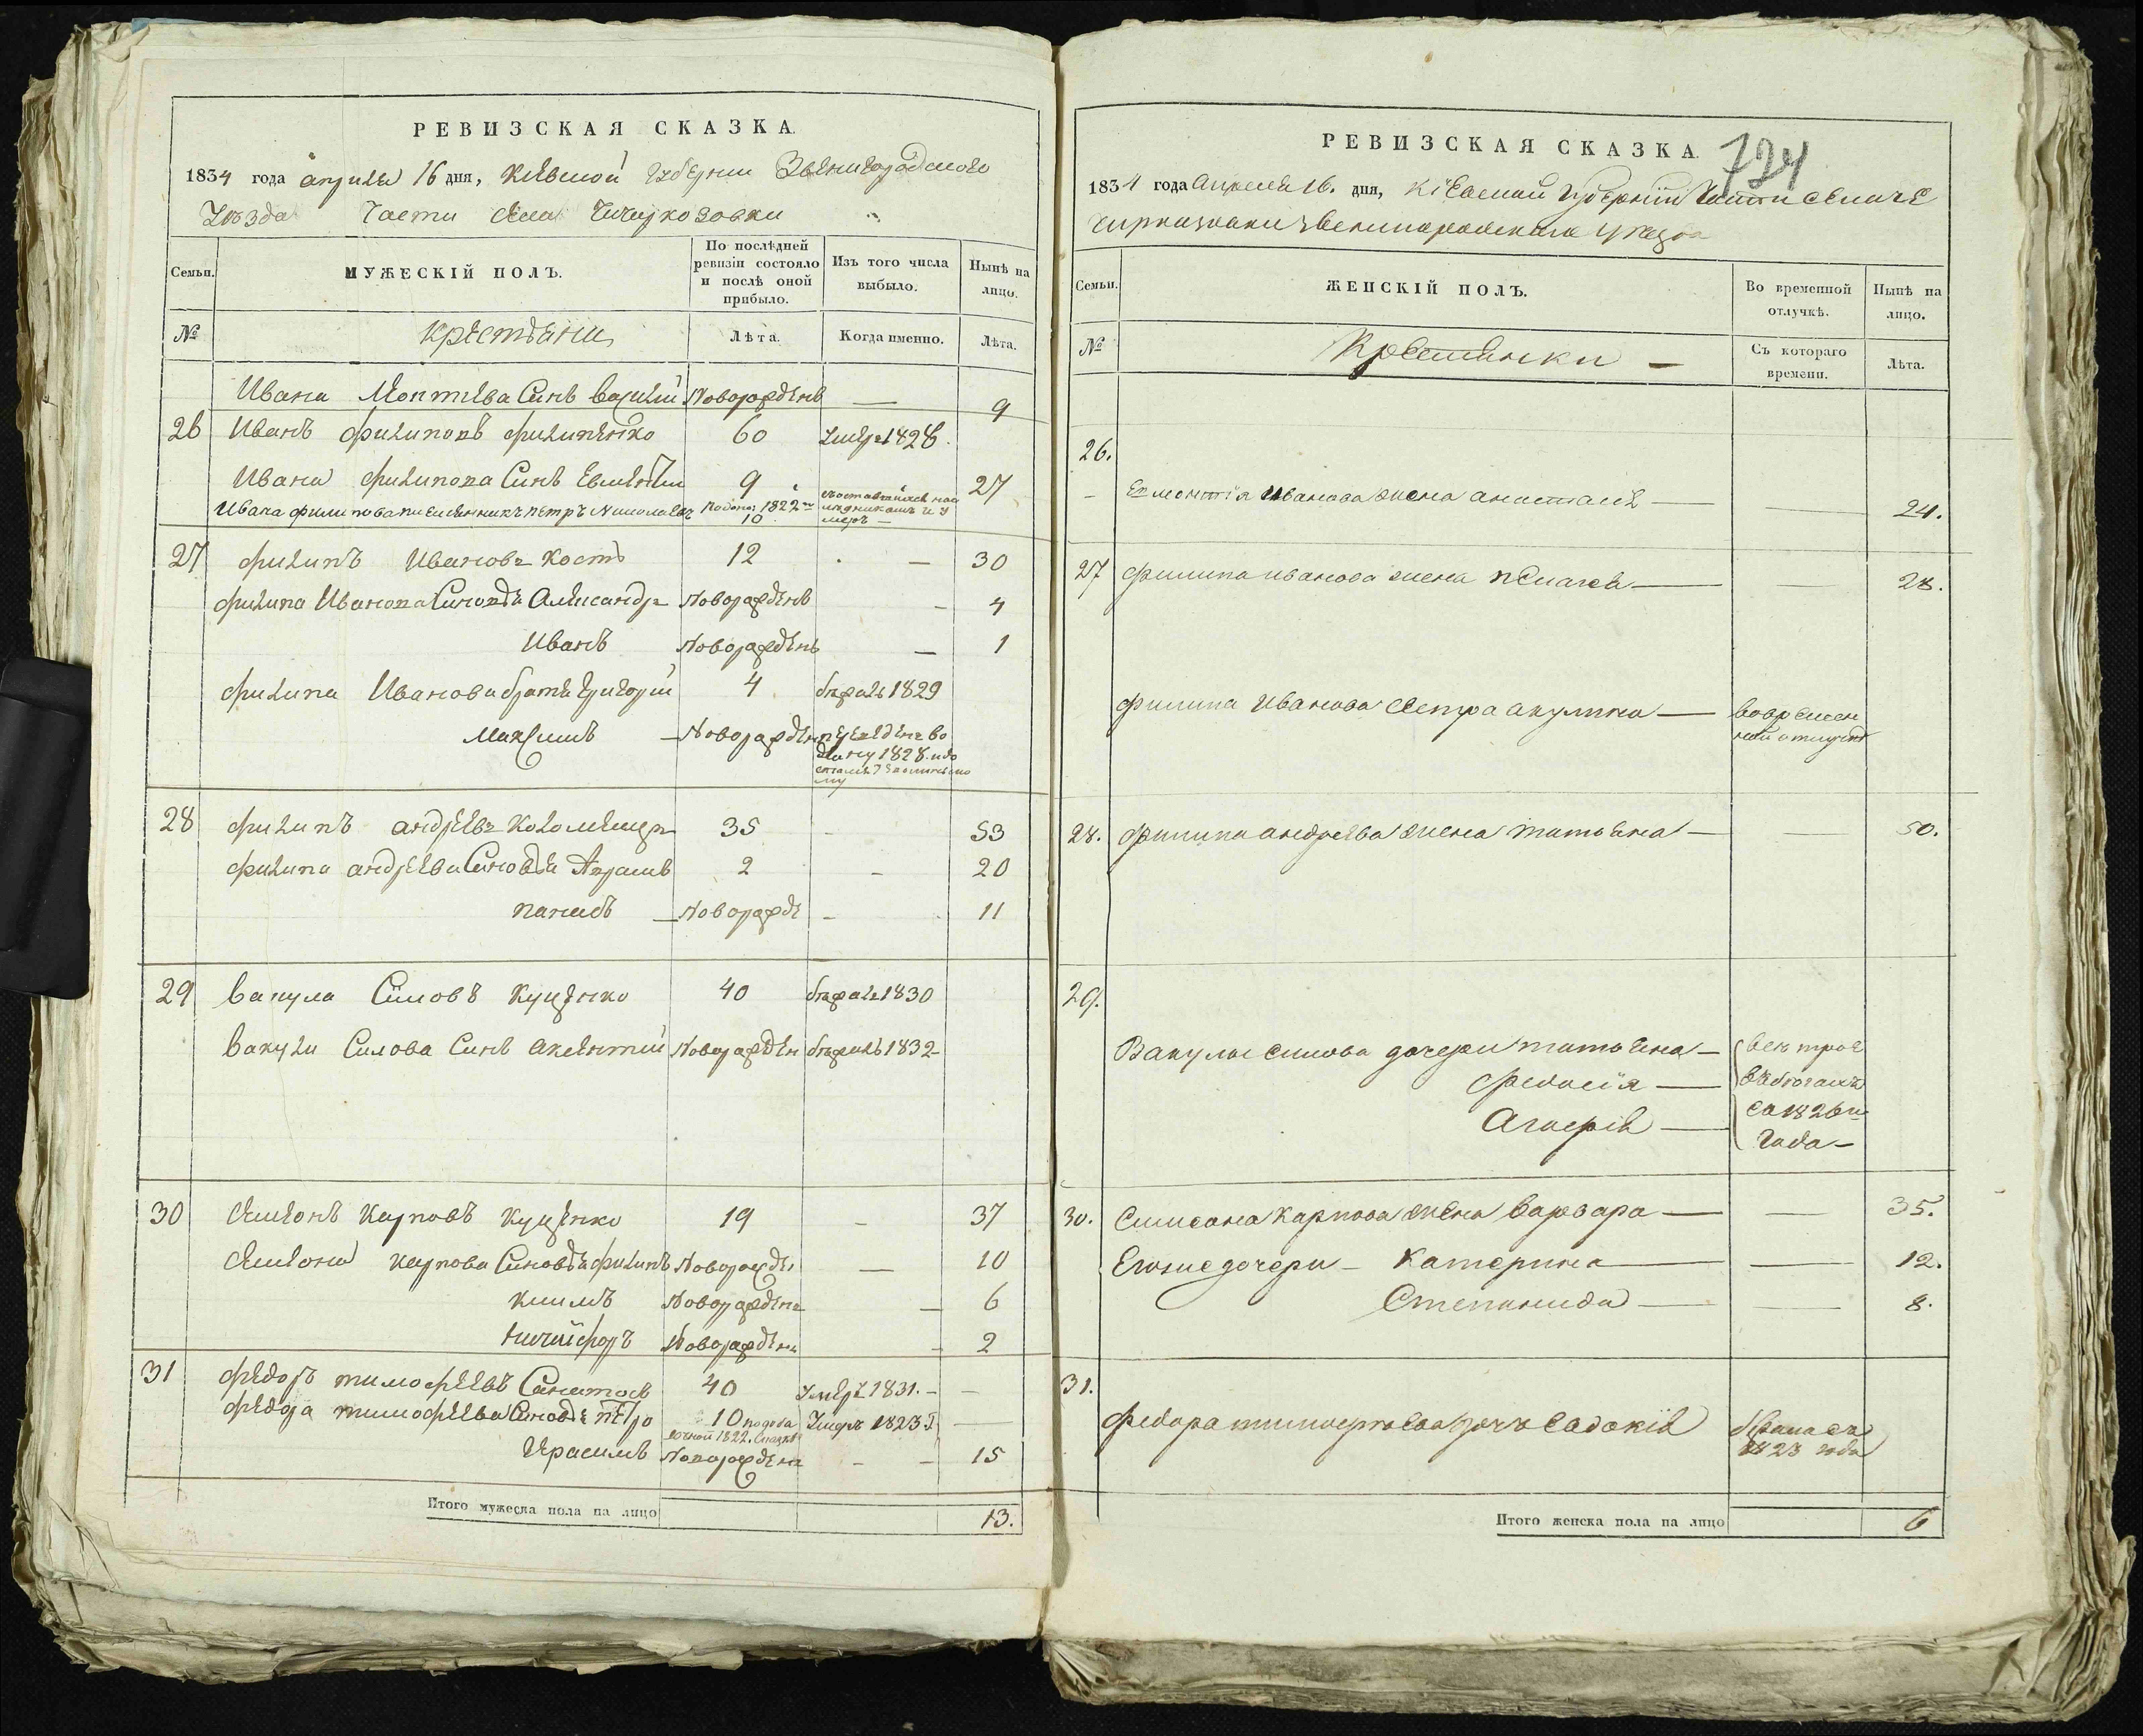 РЕВИЗСКАЯ СКАЗКА.
1834 года апреля 16 дня, Киевской Губернии Звенигородского
Уезда Части села
Семьи.
МУЖЕСКІЙ ПОЛЪ.
По послѣдней ревизіи состояло и послѣ оной прибыло.
Изъ того числа выбыло.
Нынѣ на лицо.
№
крестьяни
Лѣта.
Когда именно.
Лѣта.
Ивана Сынъ Василий Новорожденъ — 9
26 Иванъ Филиповъ Филипенко 60 умеръ 1828.
Ивана Филипова Сынъ 9 27
Ивана Филипова племянникъ Петръ Николаевъ 1822 10
27 Филипъ Ивановъ Кость 12 — 30
Филипа Иванова Сыновья Александръ Новорожденъ — 4
Иванъ Новорожденъ — 1
Филипа Иванова братья Григорий 4 бежалъ 1829
Максимъ — Новорожден 1828.
28 Филипъ Андреевъ Коломеецъ 35 - 53
Филипа Андреева Сыновья Абрамъ 2 - 20
Панасъ — Новорожде - 11
29 Вакула Симовъ Куценко 40 бежалъ 1830
Вакулы Силова Сынъ Новорожден бежалъ 1832-
30 Семионъ Карповъ Куценко 19 - 37
Семиона Карпова Сыновья Филипъ Новорожде — 10
Климъ Новорожденъ — 6
Новорожденъ - 2
31 Федоръ Тимофеевъ 40 умеръ 1831.- —
Федора Тимофеева Сыновья Петро 10 по 1822. умеръ 1823 —
Герасимъ Новорожденъ - - 15
Итого мужеска пола на лицо
13.
РЕВИЗСКАЯ СКАЗКА.
724
1834 года Апреля 16. дня, Кіевской Губерніи Части
Звенигородскаго Уезда
Семьи.
ЖЕНСКІЙ ПОЛЪ.
Во временной отлучкѣ.
Нынѣ на лицо.
№
Крестьянки —
Съ котораго времени.
Лѣта.
26.
Иванова жена — — 24.
27 Филипа Иванова жена Пелагея — — 28.
Филипа Иванова сестра Акулина — вовремен
ной отлучке
28. Филипа Андреева жена Татьяна — 50.
29.
Вакулы Силова дочери Татьяна — все трое
Федосія — въ бегахъ
— съ 1826го
Года —
30. Симеона Карпова жена Варвара — — 35.
Егоже дочери — Катерина — — 12.
Степанида — — 8.
31.
Федора дочь Евдокія
1823 года
Итого женска пола на лицо
6